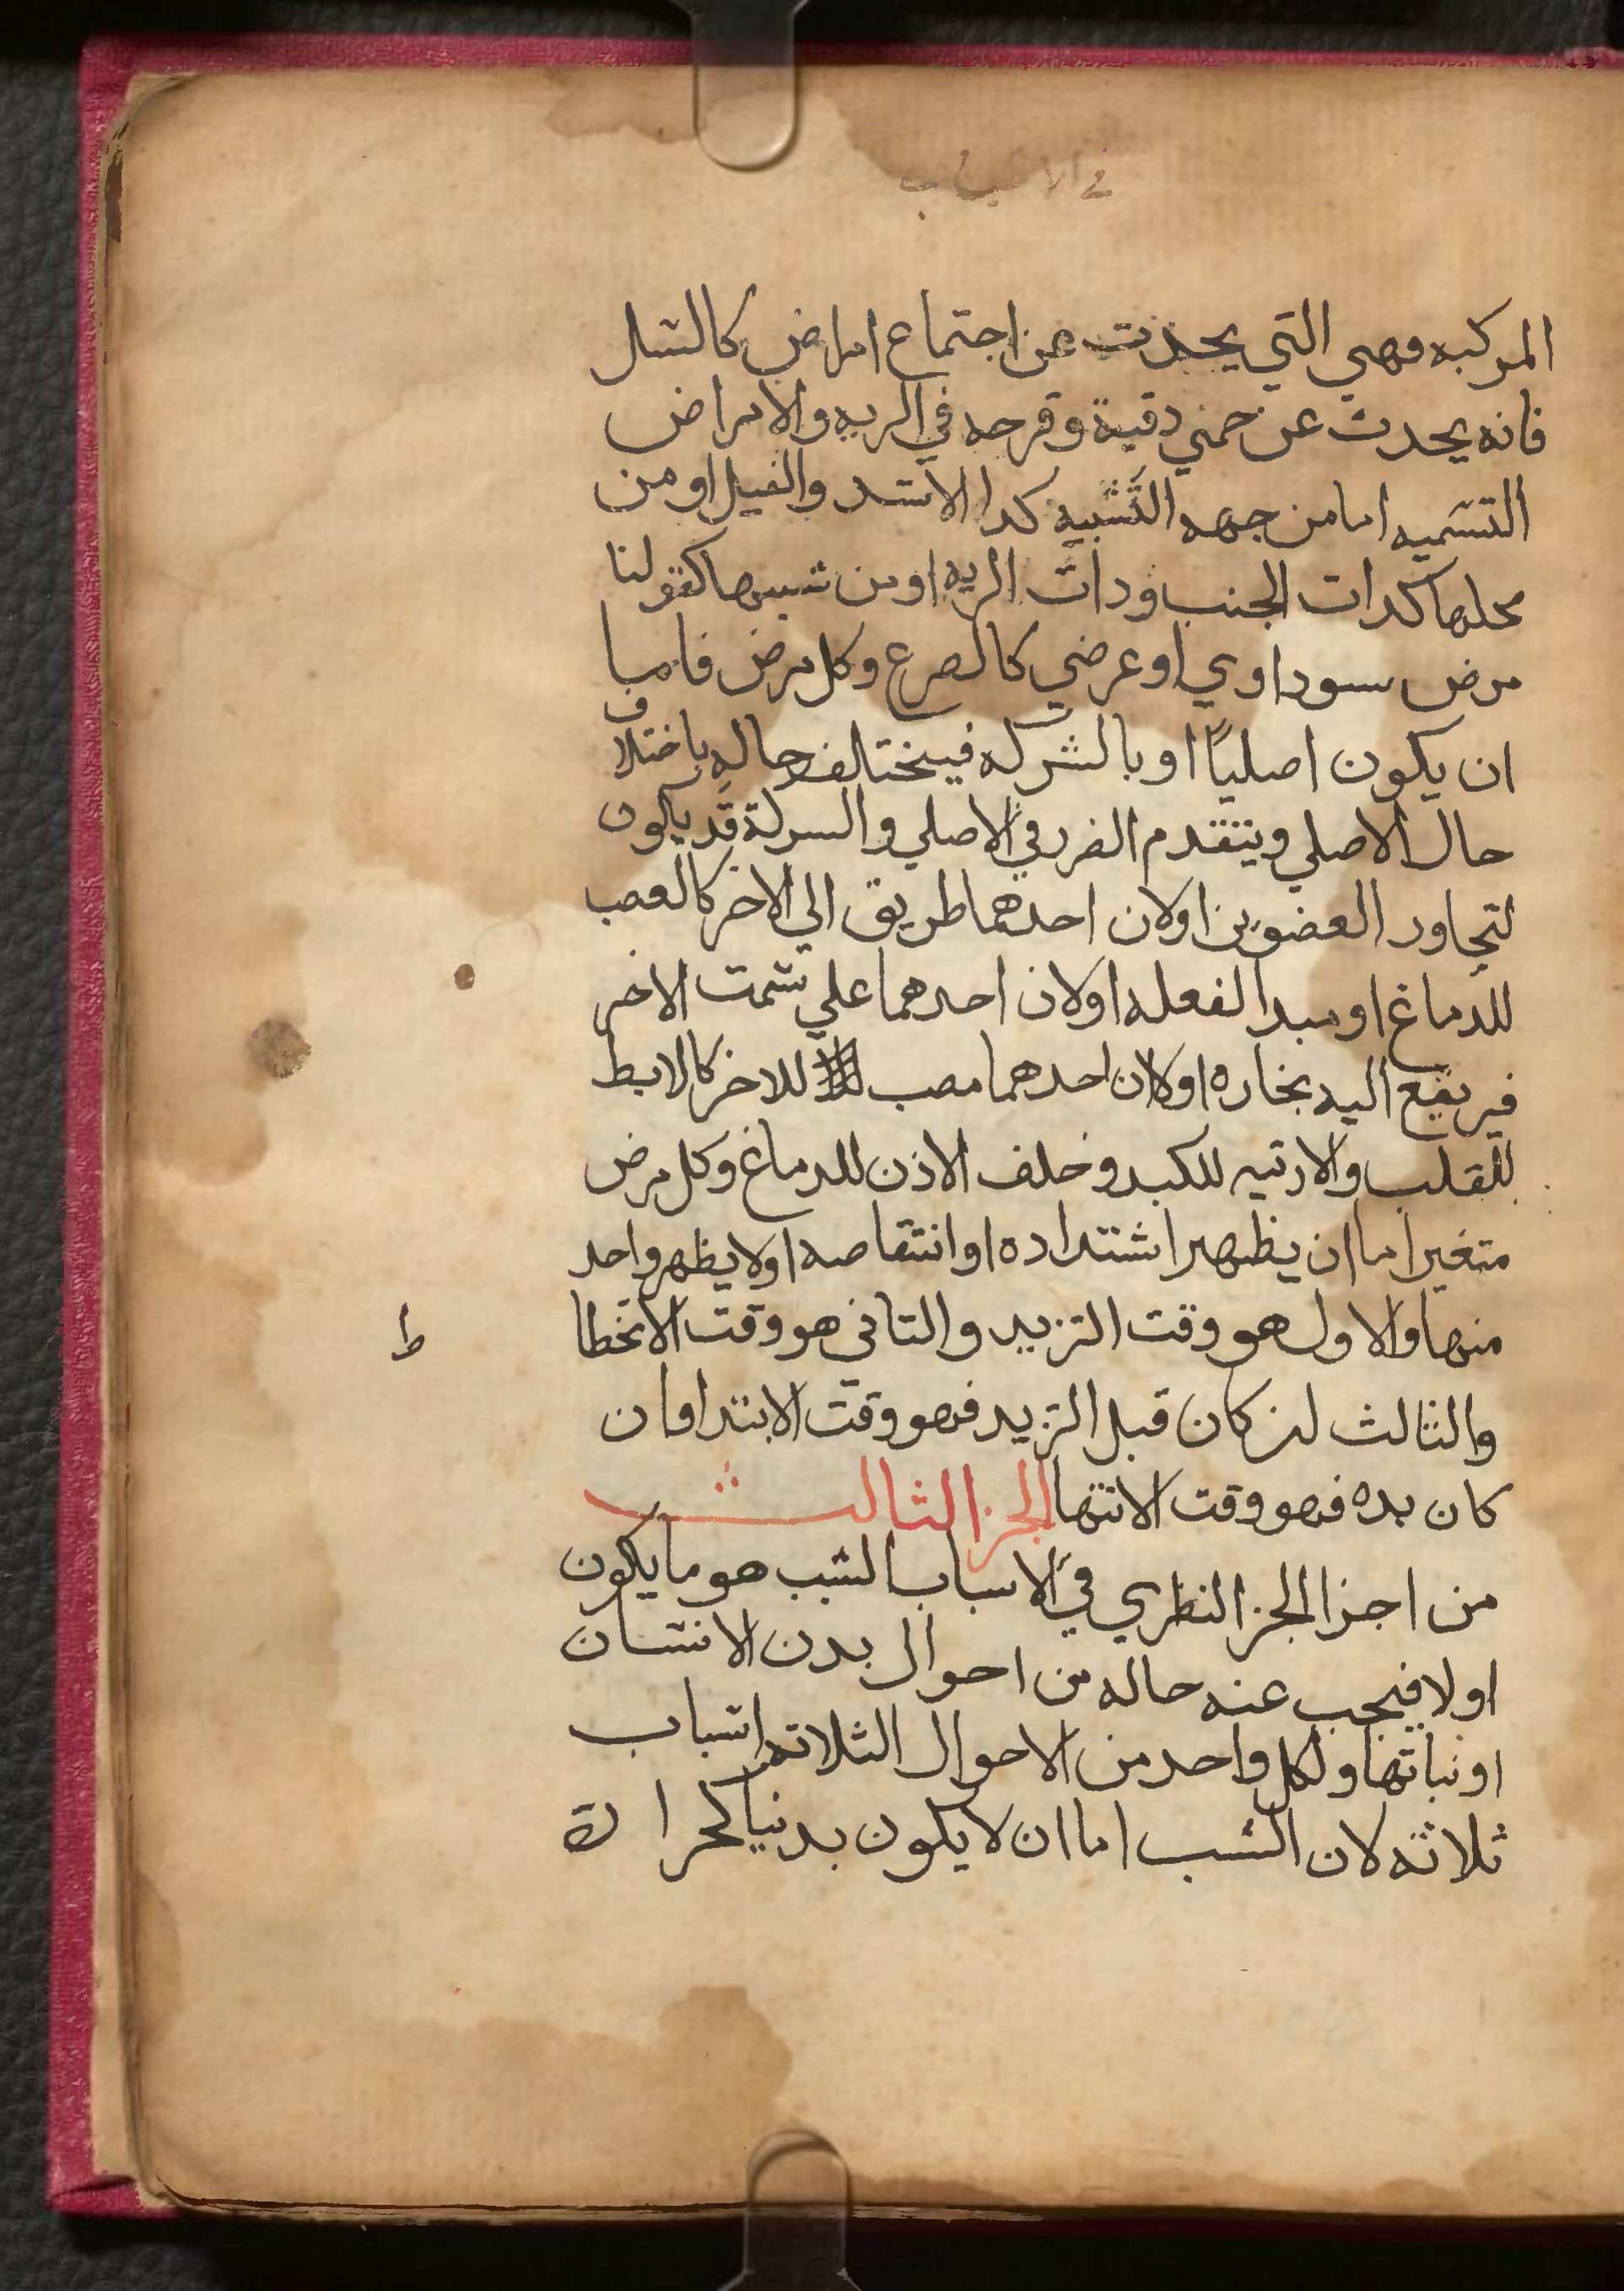 في الاسباب
المركبه فهي التي يحدث عن اجتماع امراض كالسل
فانه يحدث عن حمي دقية وقرحه في الريه والامراض
التسميه اما من جهه التشبيه كدا الاسد والفيل او من
محلها كدات الجنب ودات الريه او من شببها كقولنا
مرض سوداوي او عرضي كالصرع وكل مرض فاما
ان يكون اصلياً او بالشركه فيختالف حاله باختلاف
حال الاصلي ويتقدم الضرر في الاصلي والسركة قد يكون
لتجاور العضوين اولان احدهما طريق الي الاخر كالعصب
للدماغ او مبدا لفعله اولان احدهما علي سمت الاخر
فيرتفع اليه بخاره اولان احدهما مصب للاخر كالابط
للقلب والارتيه للكبد وخلف الاذن للدماغ وكل مرض
متغير اما ان يظهر اشتداده او انتقاصه اولا يظهر واحد
منها والاول هو وقت التزيد والتاني هو وقت الانخطا
ط
والثالث ان كان قبل التزيد فهو وقت الابتدا وان
كان بده فهو وقت الانتها الجز الثالث
من اجزا الجز النظري في الاسباب السبب هو ما يكون
اولا فيجب عنه حاله من احوال بدن الانسان
او نباتها ولكل واحد من الاحوال الثلاته اسباب
ثلاثه لان السبب اما ان لا يكون بدنيا كحرارة